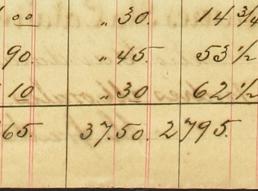 1 00 " 30. 14 3/4
90. " 45. 53 1/2
10 " 30 62 1/2
65. 37.50. 2795.